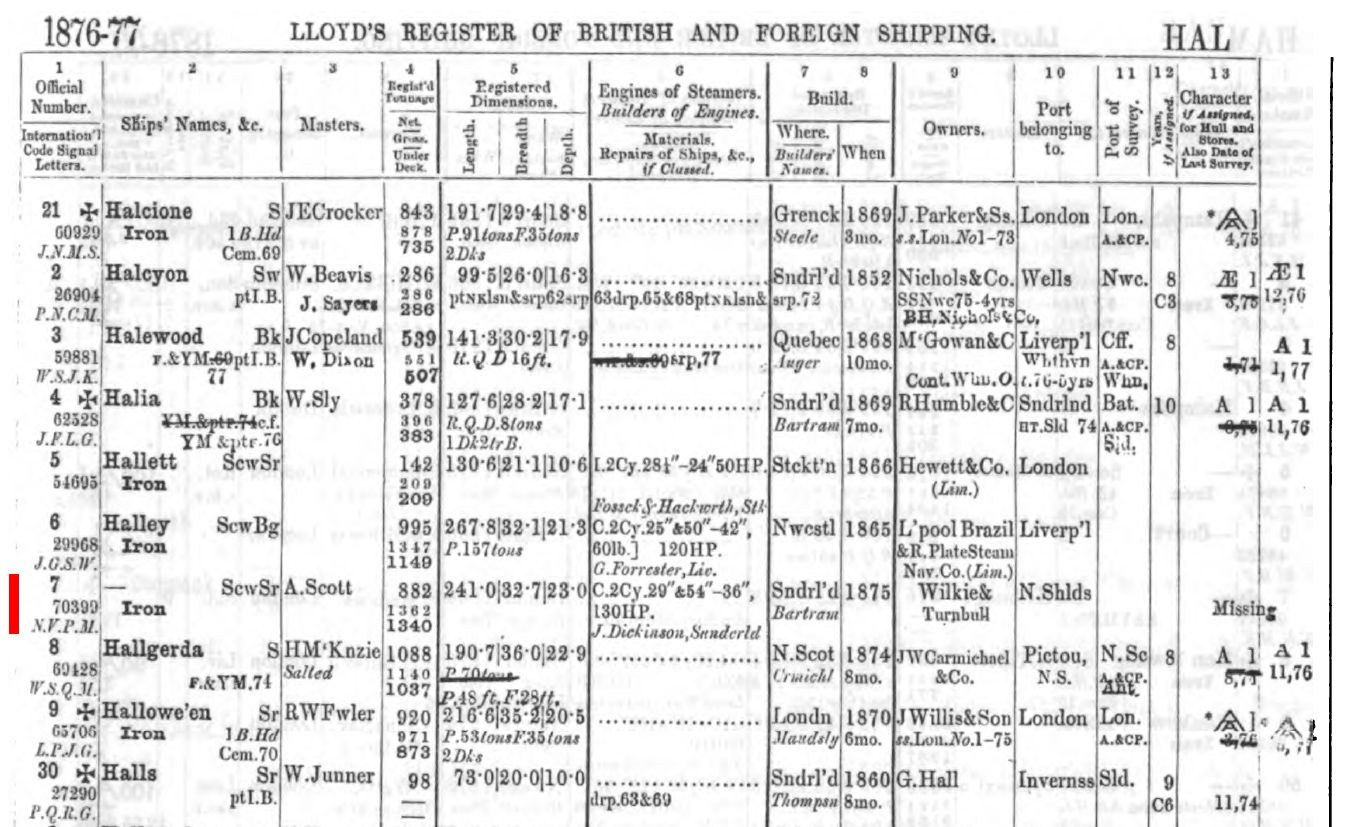 1876-77 LLOYD'S REGISTER OF BRITISH AND FOREIGN SHIPPING. HAL
1 2 3 4 5 6 7 8 9 10 11 12 13
Official Number. International Code Signal Letters.
Ships' Names, &c.
Masters.
Regist'd Tonnage Net. Gross. Under Deck.
Registered Dimensions. Length. Breadth Depth.
Engines of Steamers. Builders of Engines. Materials. Repairs of Ships, &c., if Classed.
Build. Where. Builders' Names. When
Owners.
Port belonging to.
Port of Survey.
Years, if Assigned.
Character if Assigned, for Hull and Stores. Also Date of Last Survey.
21 ✠ Halcione S JECrocker 843 191·7 29·4 18·8 Grenck 1869 J.Parker&Ss. London Lon.
60929 Iron 1B.Hd 878 P.91tonsF.35tons Steele 3mo. s.s.Lon.No1-73 A.&CP. 4,75
J.N.M.S. Cem.69 735 2Dks
2 Halcyon Sw W.Beavis 286 99·5 26·0 16·3 Sndrl'd 1852 Nichols&Co. Wells Nwc. 8 Æ 1 Æ 1
26904 ptI.B. J. Sayers 286 ptNKlsn&srp62srp 63drp.65&68ptNKlsn& srp.72 SSNwc75-4yrs C3 3,75 12,76
P.N.C.M. 286 BH,Nichols&Co,
3 Halewood Bk JCopeland 539 141·3 30·2 17·9 Quebec 1868 M'Gowan&C Liverp'l Cff. 8 A 1
59881 F.&YM.69ptI.B. W. Dixon 551 lt.Q D 16ft. srp,77 Auger 10mo. Whthvn A.&CP. 1,71 1,77
W.S.J.K. 77 507 Cont.Whn.O.r.76-5yrs Whn,
4 ✠ Halia Bk W.Sly 378 127·6 28·2 17·1 Sndrl'd 1869 RHumble&C Sndrlnd Bat. 10 A 1 A 1
62528 YM.&ptr.74c.f. 396 R.Q.D.8tons Bartram 7mo. HT.Sld 74 A.&CP. 8,75 11,76
J.F.L.G. YM &ptr.76 383 1Dk2trB. Sld.
5 Hallett ScwSr 142 130·6 21·1 10·6 I.2Cy.28¼"-24"50HP. Stckt'n 1866 Hewett&Co. London
54695 Iron 209 (Lim.)
209
Fossck&Hackwrth,Stk
6 Halley ScwBg 995 267·8 32·1 21·3 C.2Cy.25"&50"-42", Nwcstl 1865 L'pool Brazil Liverp'l
29968 Iron 1347 P.157tons 60lb.] 120HP. &R.PlateSteam
J.G.S.W. 1149 G.Forrester,Liv. Nav.Co.(Lim.)
7 — ScwSr A.Scott 882 241·0 32·7 23·0 C.2Cy.29"&54"-36", Sndrl'd 1875 Wilkie& N.Shlds
70399 Iron 1362 130HP. Bartram Turnbull Missing
N.V.P.M. 1340 J.Dickinson,Sunderld
8 Hallgerda S HM'Knzie 1088 190·7 36·0 22·9 N.Scot 1874 JWCarmichael Pictou N.Sc 8 A 1 A 1
69428 F.&YM.74 Salted 1140 P.70tons Crmichl 8mo. &Co. N.S. A.&CP. 8,74 11,76
W.S.Q.M. 1037 P.48ft.F.28ft. Ant.
9 ✠ Hallowe'en Sr RWFwler 920 216·6 35·2 20·5 Londn 1870 J Willis&Son London Lon.
65706 Iron 1B.Hd 971 P.53tonsF.35tons Maudsly 6mo. ss.Lon.No.1-75 A.&CP. 3,76
L.P.J.G. Cem.70 873 2Dks
30 ✠ Halls Sr W.Junner 98 73·0 20·0 10·0 Sndrl'd 1860 G.Hall Invernss Sld. 9
27290 ptI.B. drp.63&69 Thompsn 8mo. C6 11,74
P.Q.R.G.